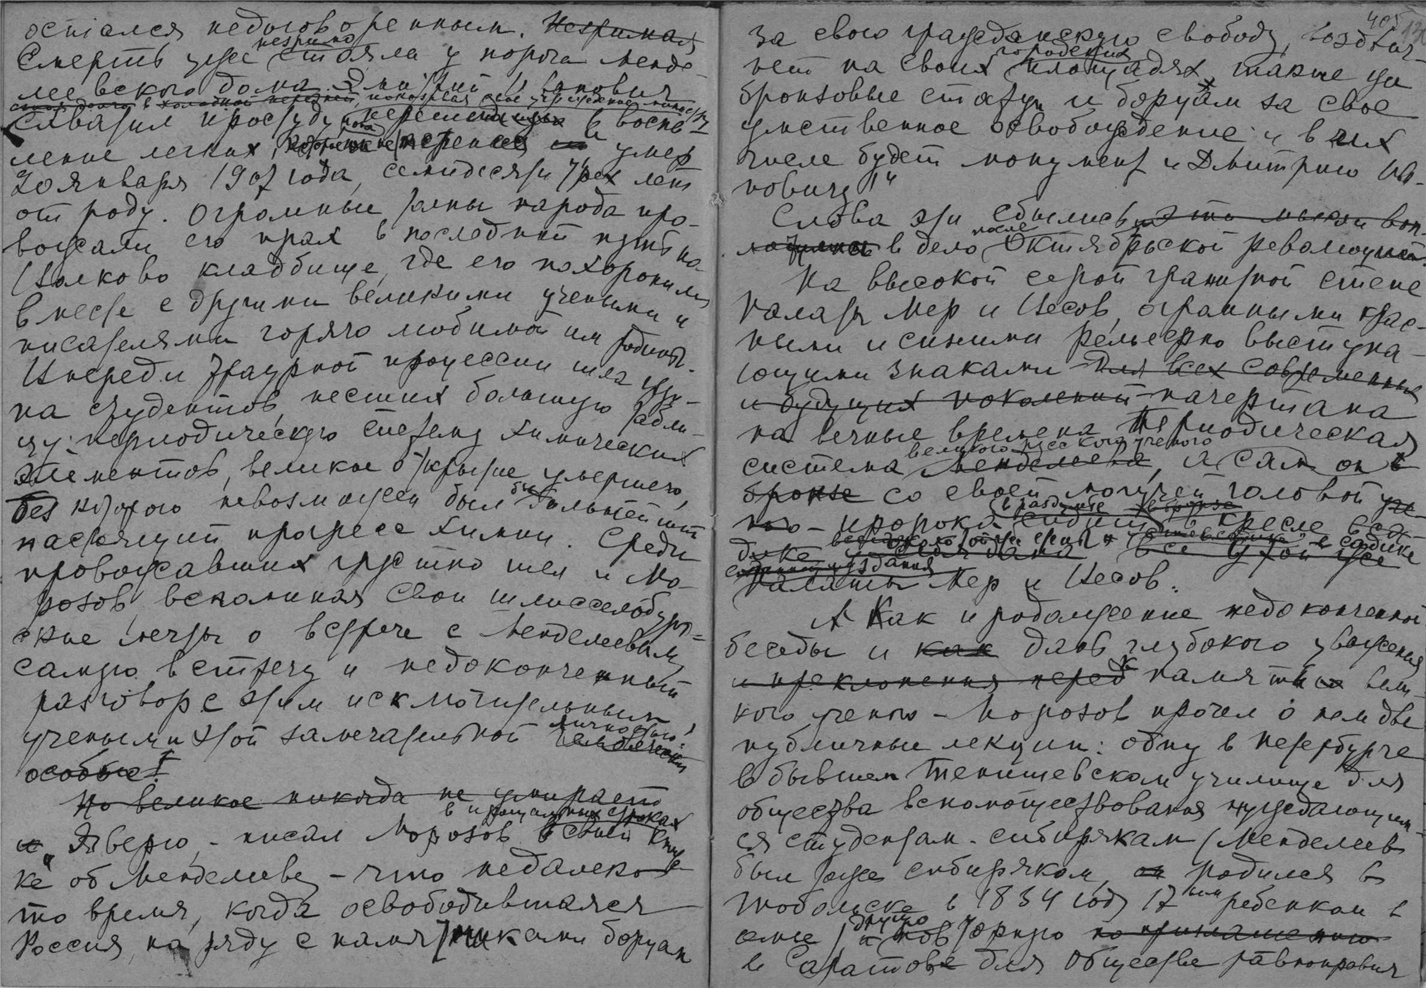 остался недоговоренным. Незримая
Смерть уже незримо стояла у порога Менде-
леевского дома. Дмитрий Иванович
схватил простуду, в воспа-
ление легких, и умер
20 января 1907 года, семидесяти трех лет
от роду. Огромные толпы народа про-
вожали его прах в последний путь на
Волково кладбище, где его похоронили
вместе с другими великими учеными и
писателями горячо любимой им родины.
Впереди траурной процессии шла груп-
па студентов, несших большую табли-
цу: периодическую систему химических
элементов, великое открытие умершего,
без которого невозможен был бы дальнейший
настоящий прогресс химии. Среди
провожавших грустно шел и Мо-
розов вспоминая свои шлиссельбург-
ские мечты о встрече с Менделеевым,
самую встречу и недоконченный
разговор с этим исключительным
ученым и этой замечательной личностью!
особые!
Но великое никогда не умирает
и „Я верю, - писал Морозов в своей книж-
ке об Менделееве, - что недалеко
то время, когда освободившаяся
Россия, на ряду с памятниками борцам
405
за свою гражданскую свободу, воздвиг-
нет на своих городских площадях также и
бронзовые статуи и борцам за свое
умственное освобождение: и в их
числе будет монумент и Дмитрию Ива-
новичу!"
Слова эти сбылись, эта мысль воп-
лотилась в дело после Октябрьской революции.
На высокой серой гранитной стене
палаты Мер и Весов, огромными крас-
ными и синими рельефно выступа-
ющими знаками для всех современных
и будущих поколений начертана
на вечные времена Периодическая
система великого русского ученого Менделеева, а сам он в
бронзе со своей могучей головой уче-
ного - пророка в кресле в са-
дике
Палаты Мер и Весов.
Как продолжение недоконченной
беседы и как дань глубокого уважения
и преклонения перед памяти вели-
кого ученого - Морозов прочел о нем две
публичные лекции: одну в Петербурге
в бывшем Тенишевском училище для
общества вспомоществования нуждающим-
ся студентам-сибирякам (Менделеев
был тоже сибиряком, он родился в
Тобольске в 1834 году 17ым ребенком в
семье) и повторную по приглашению
в Саратове для Общества равноправия